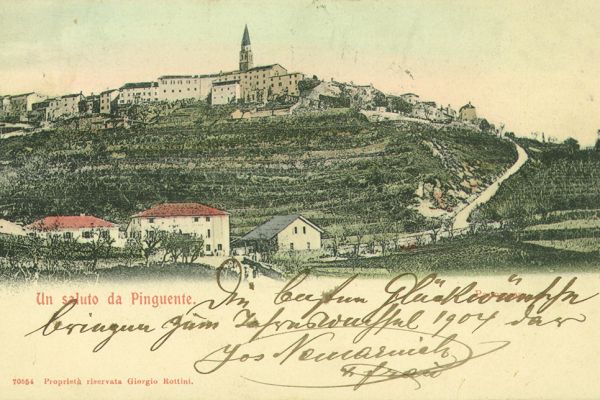 Un saluto da Pinguente.
Die besten Glückwünsche
bringen zum Jahreswechsel 1904 dar
Jos Nemarnich
u Frau
70554 Proprietà riservata Giorgio Rottini.